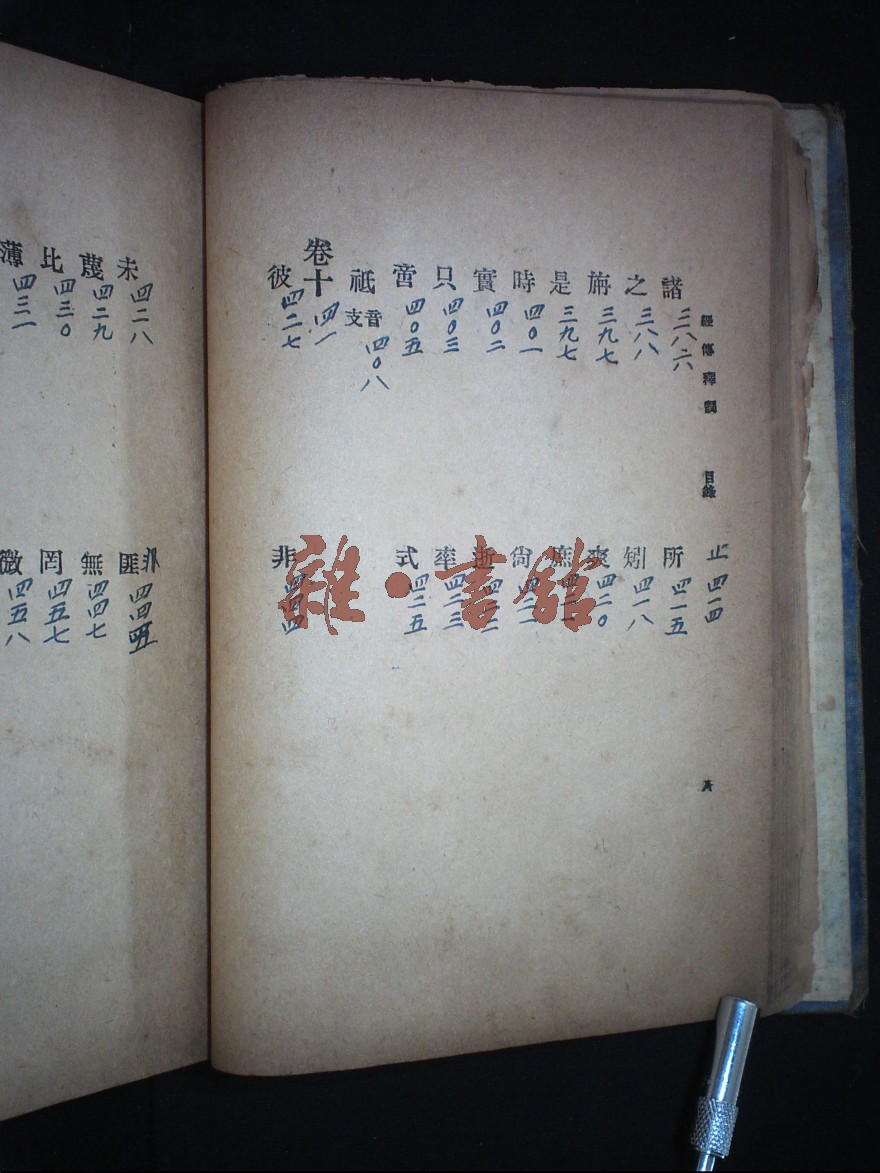 經傳釋詞 目錄
諸 三八六
之 三八八
旃 三九七
是 三九七
時 四〇一
實 四〇二
只 四〇三
啻 四〇五
祗 音支 四〇八
卷十 四一
彼 四二七
止 四一四
所 四一五
矧 四一八
爽 四二〇
庶
尚
逝
率 四二三
式 四二五
非 四四四
未 四二八
蔑 四二九
比 四三〇
薄 四三一
匪
無 四四七
罔 四五七
微 四五八
雜·書館